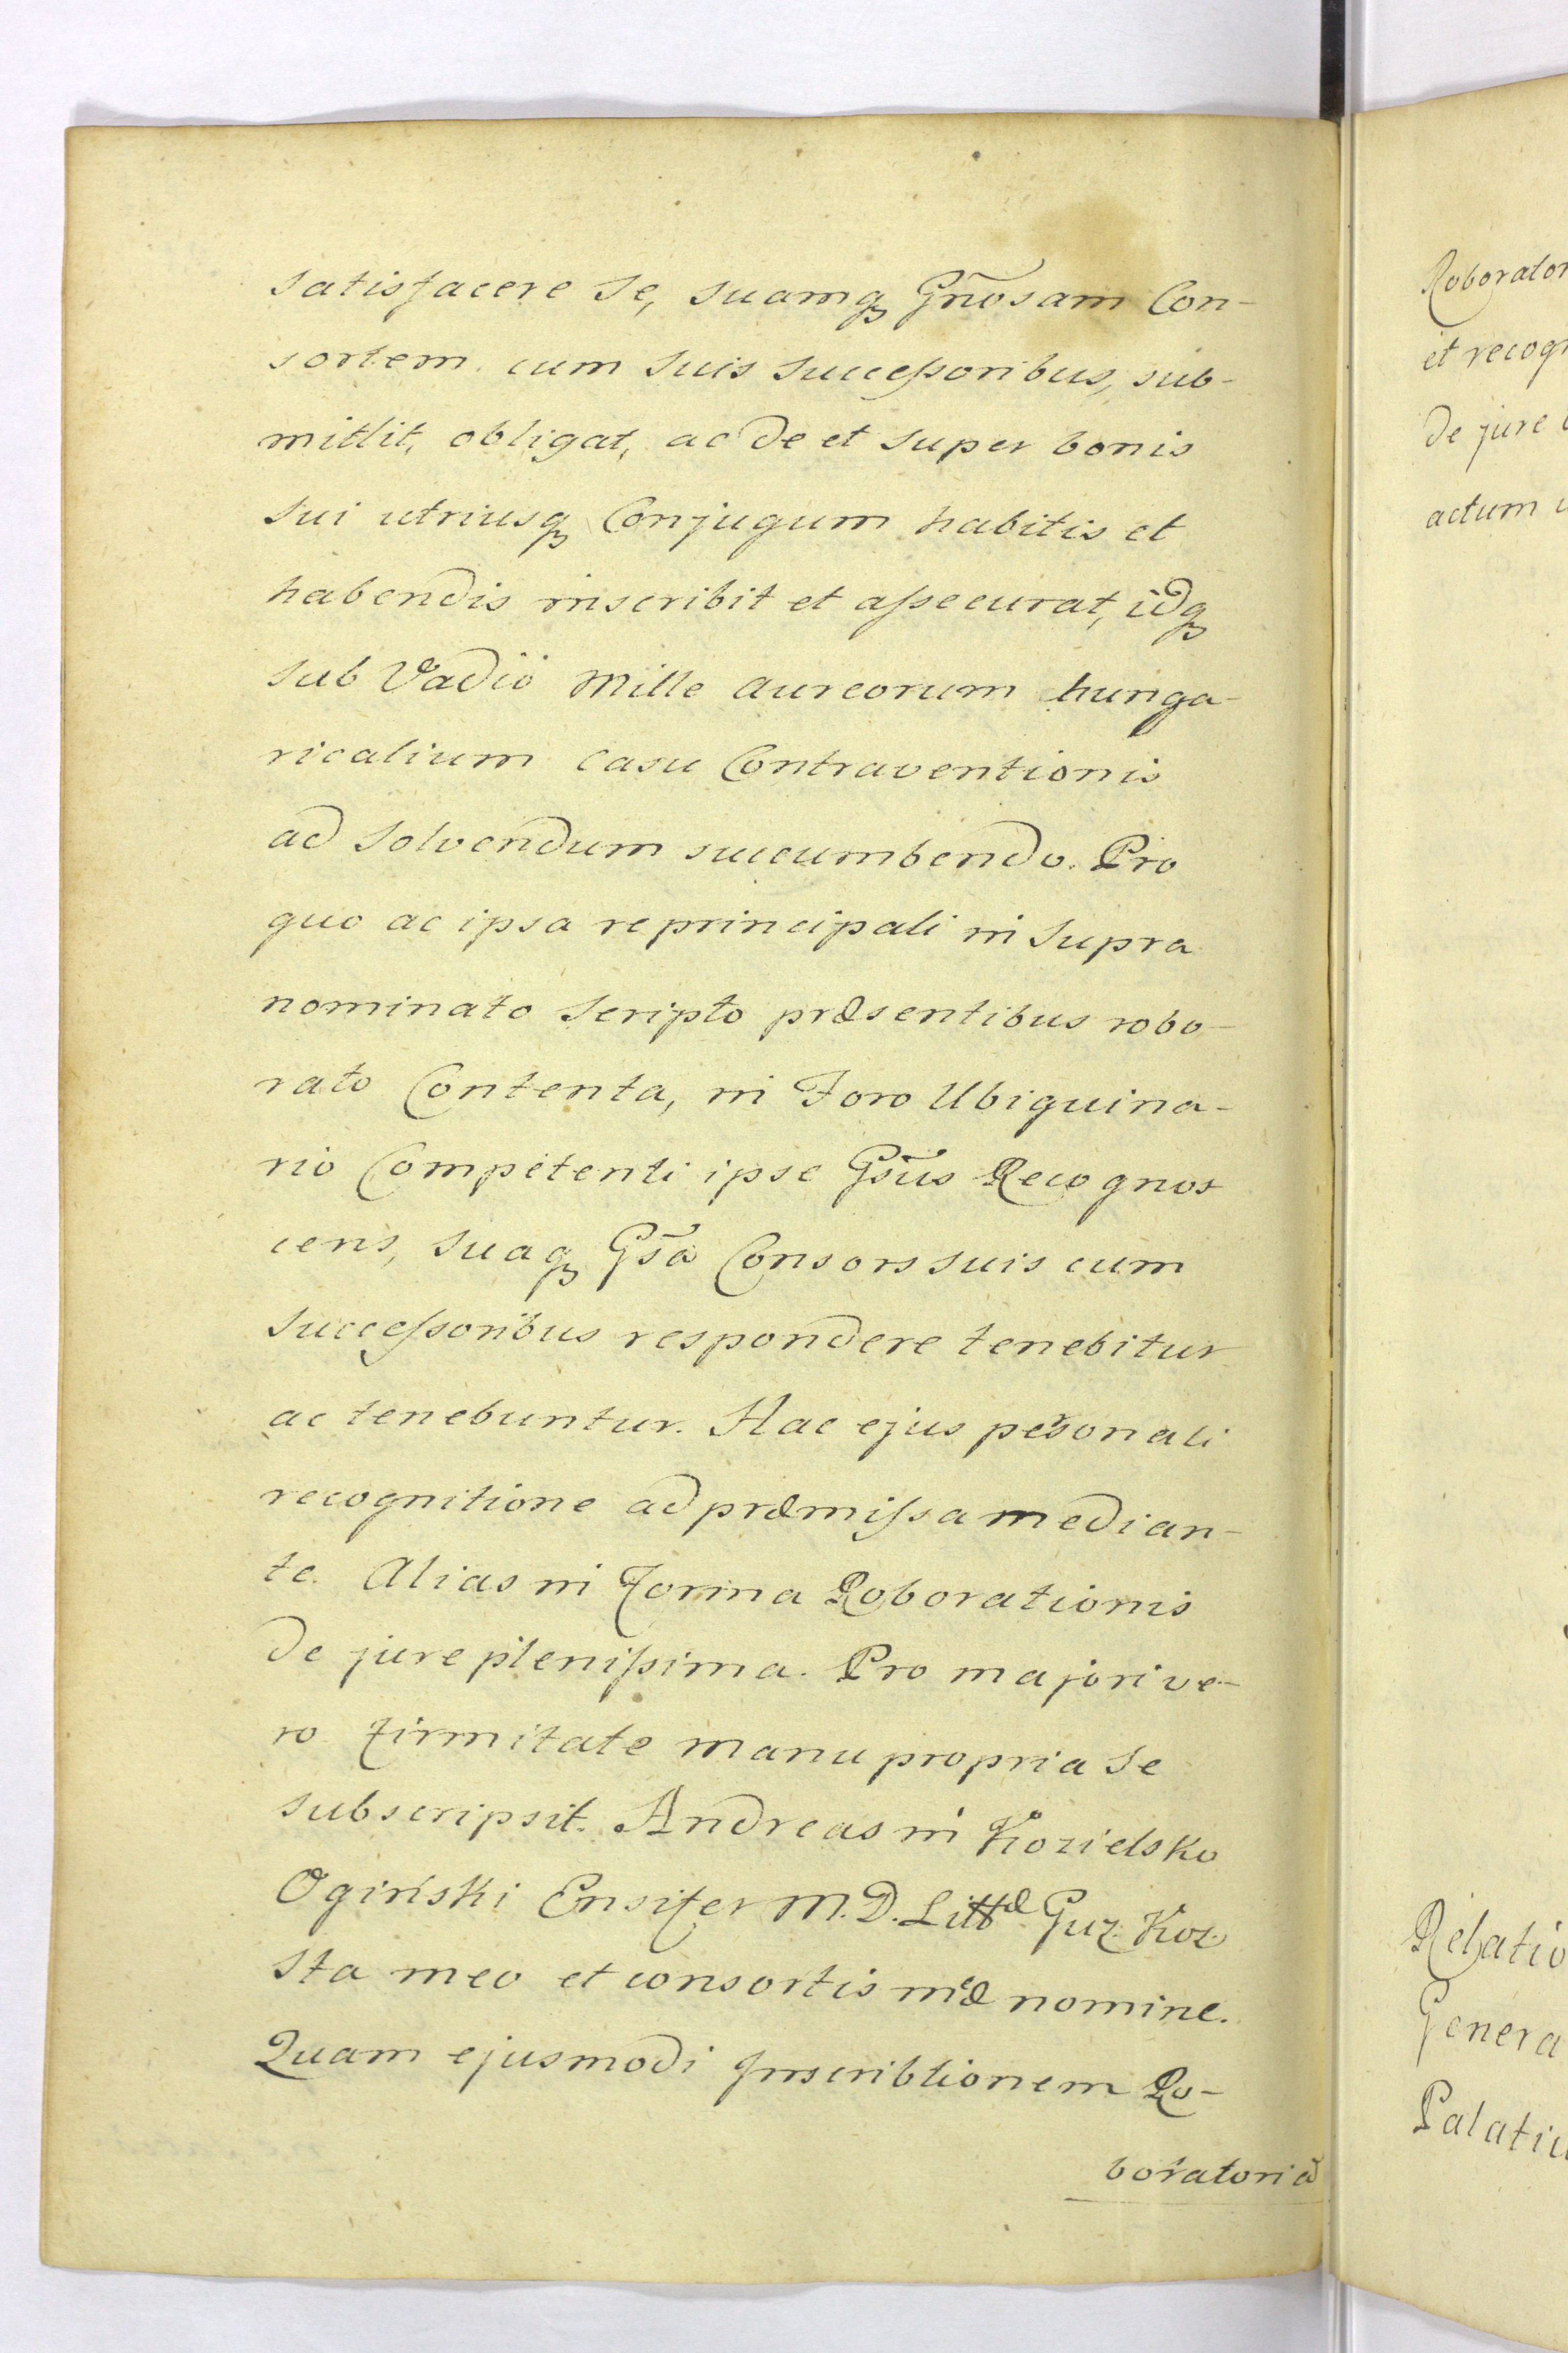 satisfacere se, suamq̃ Gñosam Con-
sortem cum suis successoribus, sub-
mittit, obligat, ac de et super bonis
sui utriusq̃ Conjugum habitis et
habendis inscribit et assecurat, idq̃
sub Vadio Mille aureorum hunga-
ricalium casu Contraventionis
ad solvendum succumbendo. Pro
quo ac ipsa re principali in supra
nominato scripto præsentibus robo-
rato Contenta, in Foro Ubiquina-
rio Competenti ipse Gsũs Recognos
cens, suaq̃ Gsã Consors suis cum
successoribus respondere tenebitur
ac tenebuntur. Hac ejus personali
recognitione ad præmissa median-
te. Alias in Forma Roborationis
de jure plenissima. Pro majori ve-
ro Firmitate manu propria se
subscripsit. Andreas in Kozielsko
Ogiński Ensifer M. D. Littæ Guz. Koz.
Sta meo et consortis meæ nomine.
Quam ejusmodi Inscribtionem Ro-
boratoriã
Roborator
et recog
de jure
actum
Relatio
Genera
Palati